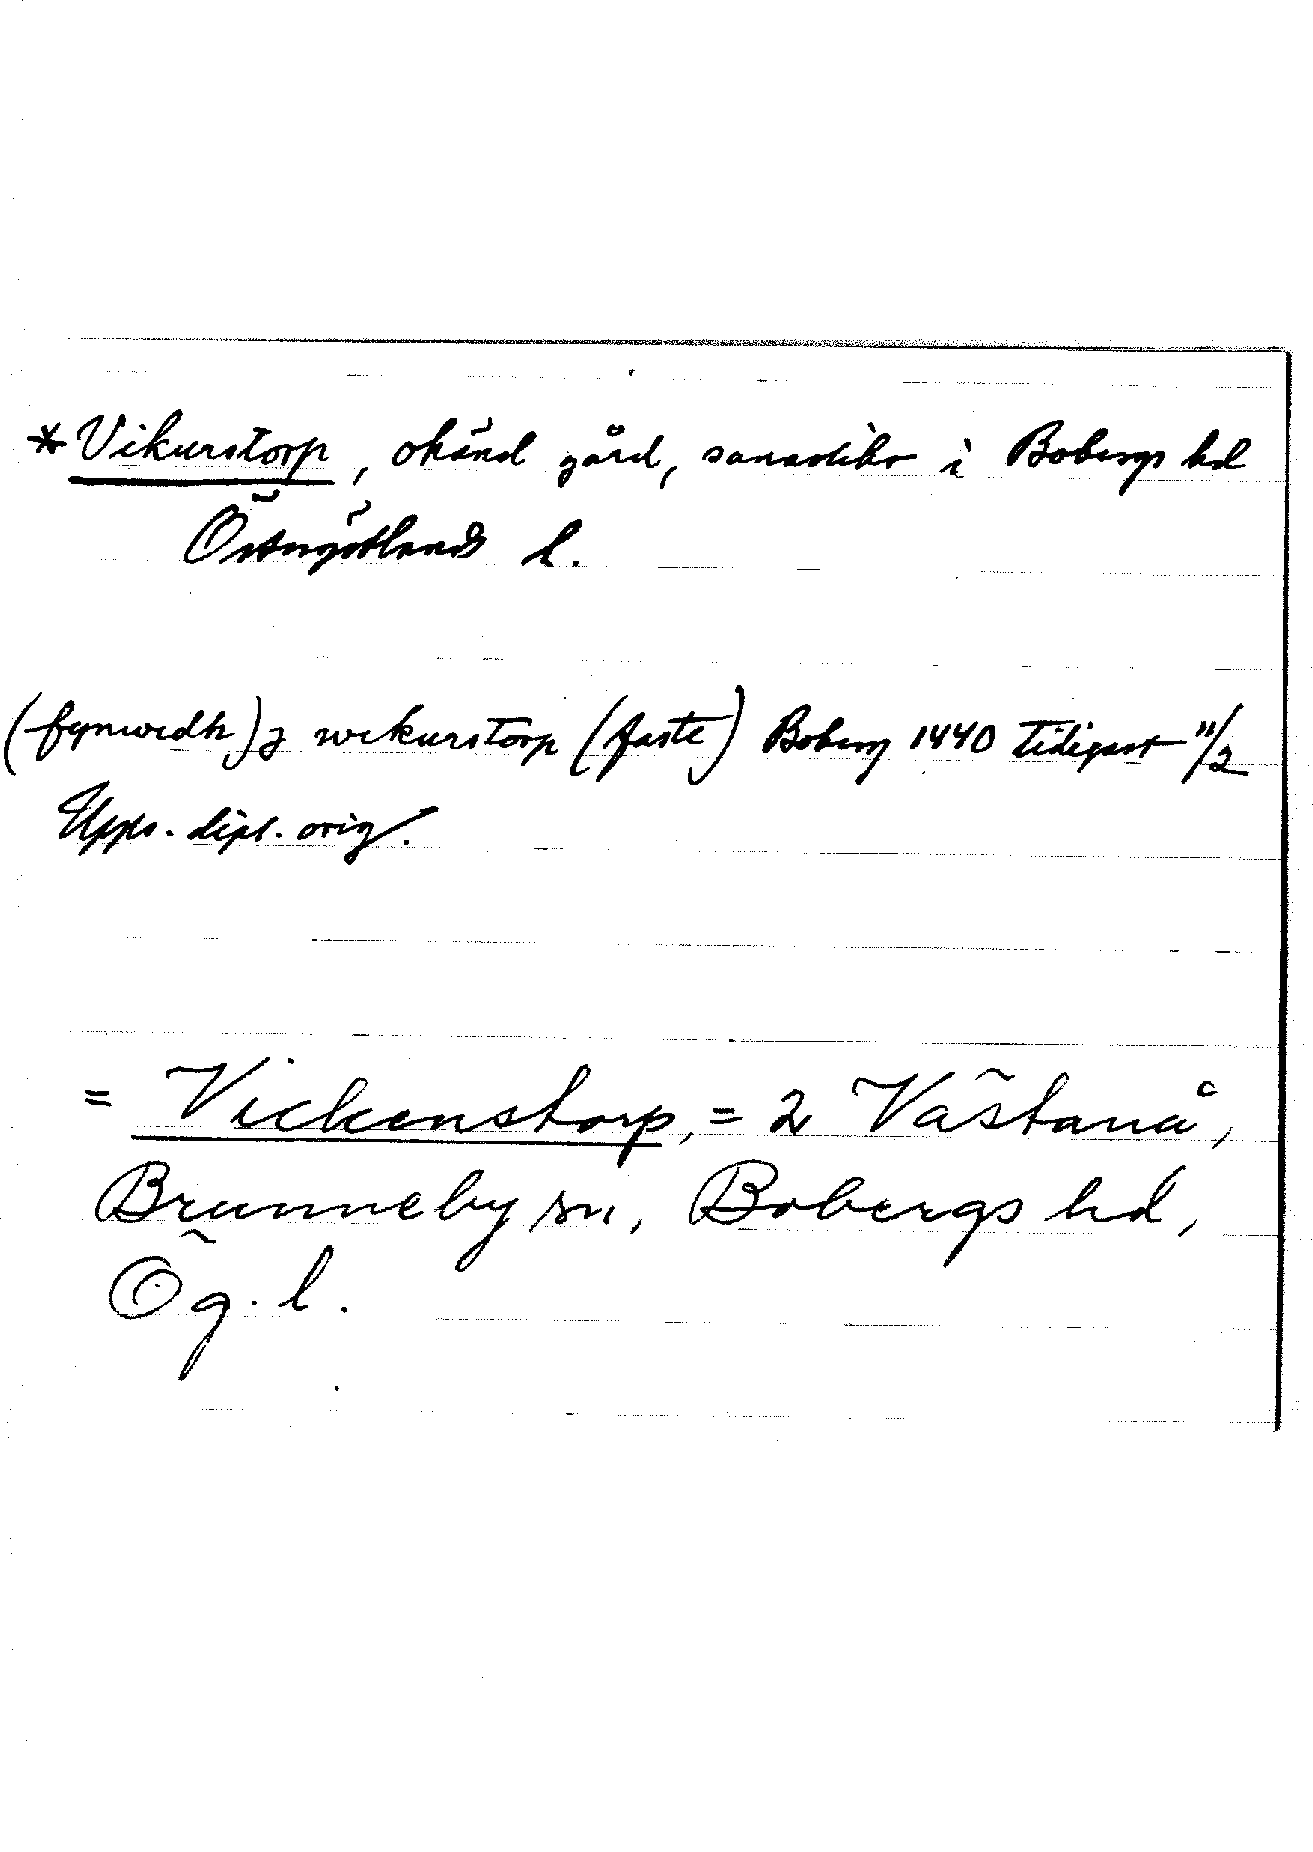 *Vikurstorp, okänd gård, sannolikt i Bobergs hd
Östergötlands l.
(fynwidh) j wikurstorp (faste) Boberg 1440 tidigast 11/2
Upps. dipl. orig.
= Vickenstorp, = 2 Västanå,
Brunneby sn, Bobergs hd,
Ög. l.